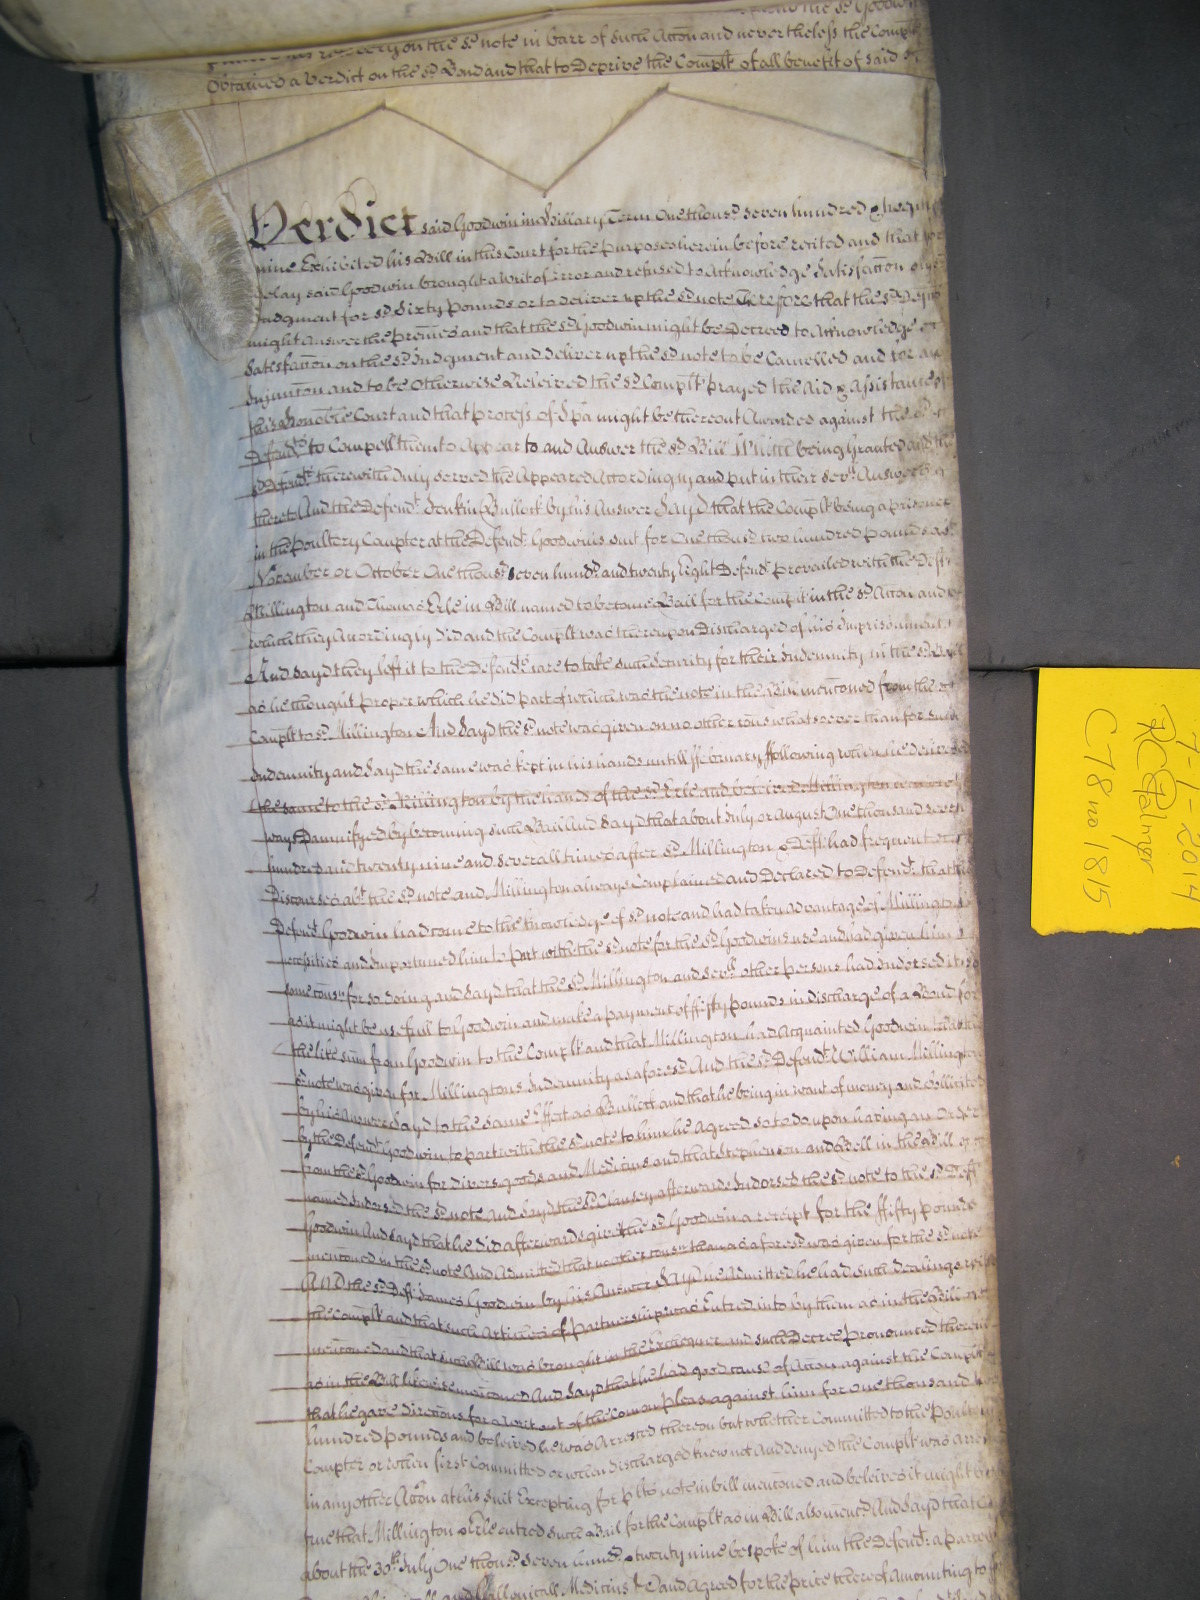 on the sd. note in barr of such Accon and nevertheless the Complt
Obtained a Verdict on the sd. Bond and that to Deprive the Complt. of all benefit of said
Verdict said Goodwin in Hillary Term One thousd. seven hundred & twenty
nine Exhibited his Bill in this Court for the purposes herein before recited and that for
delay said Goodwin brought a Writ of Error and refused to Acknowledge Satisfaccon
Judgment for sd. Sixty pounds or to deliver up the sd. note Therefore that the sd.
might Answer the premes and that the sd. Goodwin might be Decreed to Acknowledge
Satisfaccon on the sd. Judgment and deliver up the sd. note to be Cancelled and for an
Injuncon and to be Otherwise Releived the sd. Complt. prayed the Aid & Assistance of
this Honoble Court and that process of Spa might be thereout Awarded against the sd.
Defendts. to Compell them to Appear to and Answer the sd. Bill Which being Granted and the
sd. Defendts. therewith duly served the Appeared Accordingly and put in their sevll. Answers
thereto And the Defendt. Jenkin Bullock by his Answer Sayd that the Complt being a prisoner
in the Poultery Compter at the Defendt. Goodwins suit for One thousd. two hundred pounds
November or October One thousd. seven hundd. and twenty Eight Defendt. prevailed with the Defts.
Millington and Thomas Erle in Bill named to become Bail for the Complt in the sd. Accon and
which they Accordingly did and the Complt was thereupon Discharged of his Imprisonment
And Sayd they left it to the Defendts. care to take such Security for their Indemnity in the sd.
as he thought proper which he did part of which was the note in the Bill menconed from the sd.
Complt to sd. Millington And Sayd the sd. note was given on no other cons whatsoever than for such
Indemnity and Sayd the same was kept in his hands untill ffebruary ffollowing when he delivered
the same to the sd. Millington by the hands of the sd. Erle and beleived Millington
ways Damnifyed by becoming such Bail And Sayd that about July or August One thousand seven
hundred and twenty nine and severall times after sd. Millington & Deft. had frequent
Discourses abt. the sd. note and Millington always Complained and Declared to Defendt. that
Defendt. Goodwin had come to the knowledge of sd. note and had taken advantage of Millingtons
necessities and Importuned him to Part with the sd. note for the sd. Goodwins use and had given him
some cons for so doing and Sayd that the sd. Millington and sevll. other persons had Indorsed it
as it might be usefull to Goodwin and make a payment of ffifty pounds in discharge of a Bond for
the like sum from Goodwin to the Complt and that Millington had Acquainted Goodwin
sd. note was given for Millingtons Indemnity as aforesd. And the sd. Defendt. William Millington
by his Answer Sayd to the same Effect as Bullock and that he being in want of money and Sollicited
by the Defendt. Goodwin to part with the sd. note to him he Agreed so to do upon having an Order
from the sd. Goodwin for divers goods and Medicins and that Stephenson and Adell in the Bill
named Indorsed the sd. note and Sayd the sd. Clansey afterwards Indorsed the sd. note to the sd. Deft.
Goodwin And Sayd that he did afterwards give the sd. Goodwin a receipt for the ffifty pounds
menconed in the sd. note And Admitted that no other cons than as aforesd. was given for the sd. note
And the sd. Deft. James Goodwin by his Answer Sayd he Admitted he had such dealings with
the Complt and that such Articles of Partnership was Entred into by them as in the Bill
menconed and that such Bill was brought in the Exchequer and such Decree pronounced therein
as in the Bill likewise menconed And Sayd that he had good cause of Accon against the Complt
that he gave direccons for a writ out of the Comon pleas against him for One thousand two
hundred pounds and beleived he was Arrested thereon but whether Committed to the Poultery
Compter or when first Committed or when discharged knew not And denyed the Complt was Arrested
in any other Accon at his Suit Excepting for plts note in bill menconed and beleives it might be
true that Millington & Erle entred such Bail for the Complt as in Bill also mencd. And Sayd that
about the 30th. July One thousd. seven hundd. & twenty nine bespoke of him the Defendt. a parcell
Medicins & and Agreed for the price thereof Amounting to
7-1-2014
RC Palmer
C78 no 1815